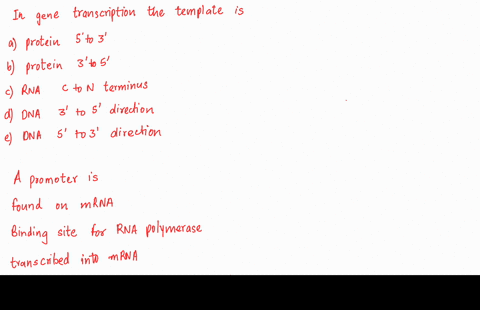 In gene transcription the template is
a) protein 5' to 3'
b) protein 3' to 5'
c) RNA C to N terminus
d) DNA 3' to 5' direction
e) DNA 5' to 3' direction
A promoter is
found on mRNA
Binding site for RNA polymerase
transcribed into mRNA